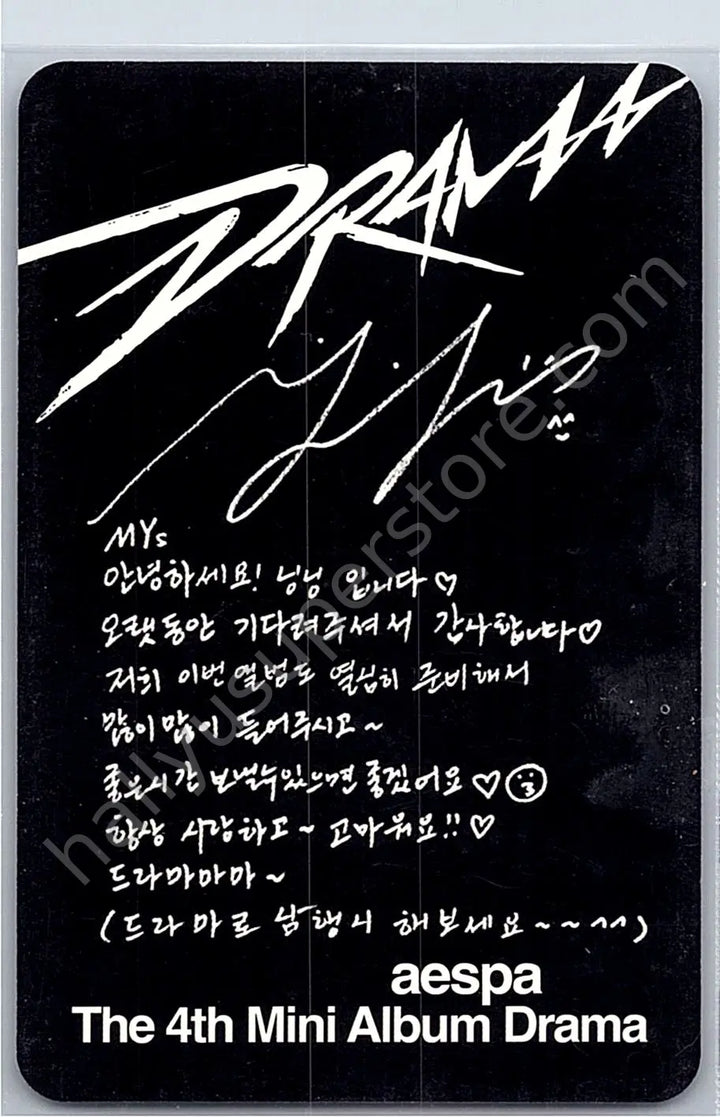 DRAMA
MYs
안녕하세요! 닝닝 입니다♡
오랫동안 기다려주셔서 감사합니다♡
저희 이번 앨범도 열심히 준비해서
많이많이 들어주시고~
좋은시간 보낼수있으면 좋겠어요♡
항상 사랑하고~ 고마워요!!♡
드라마마마~
(드라마로 삼행시 해보세요~~^^)
aespa
The 4th Mini Album Drama
hallyusuperstore.com